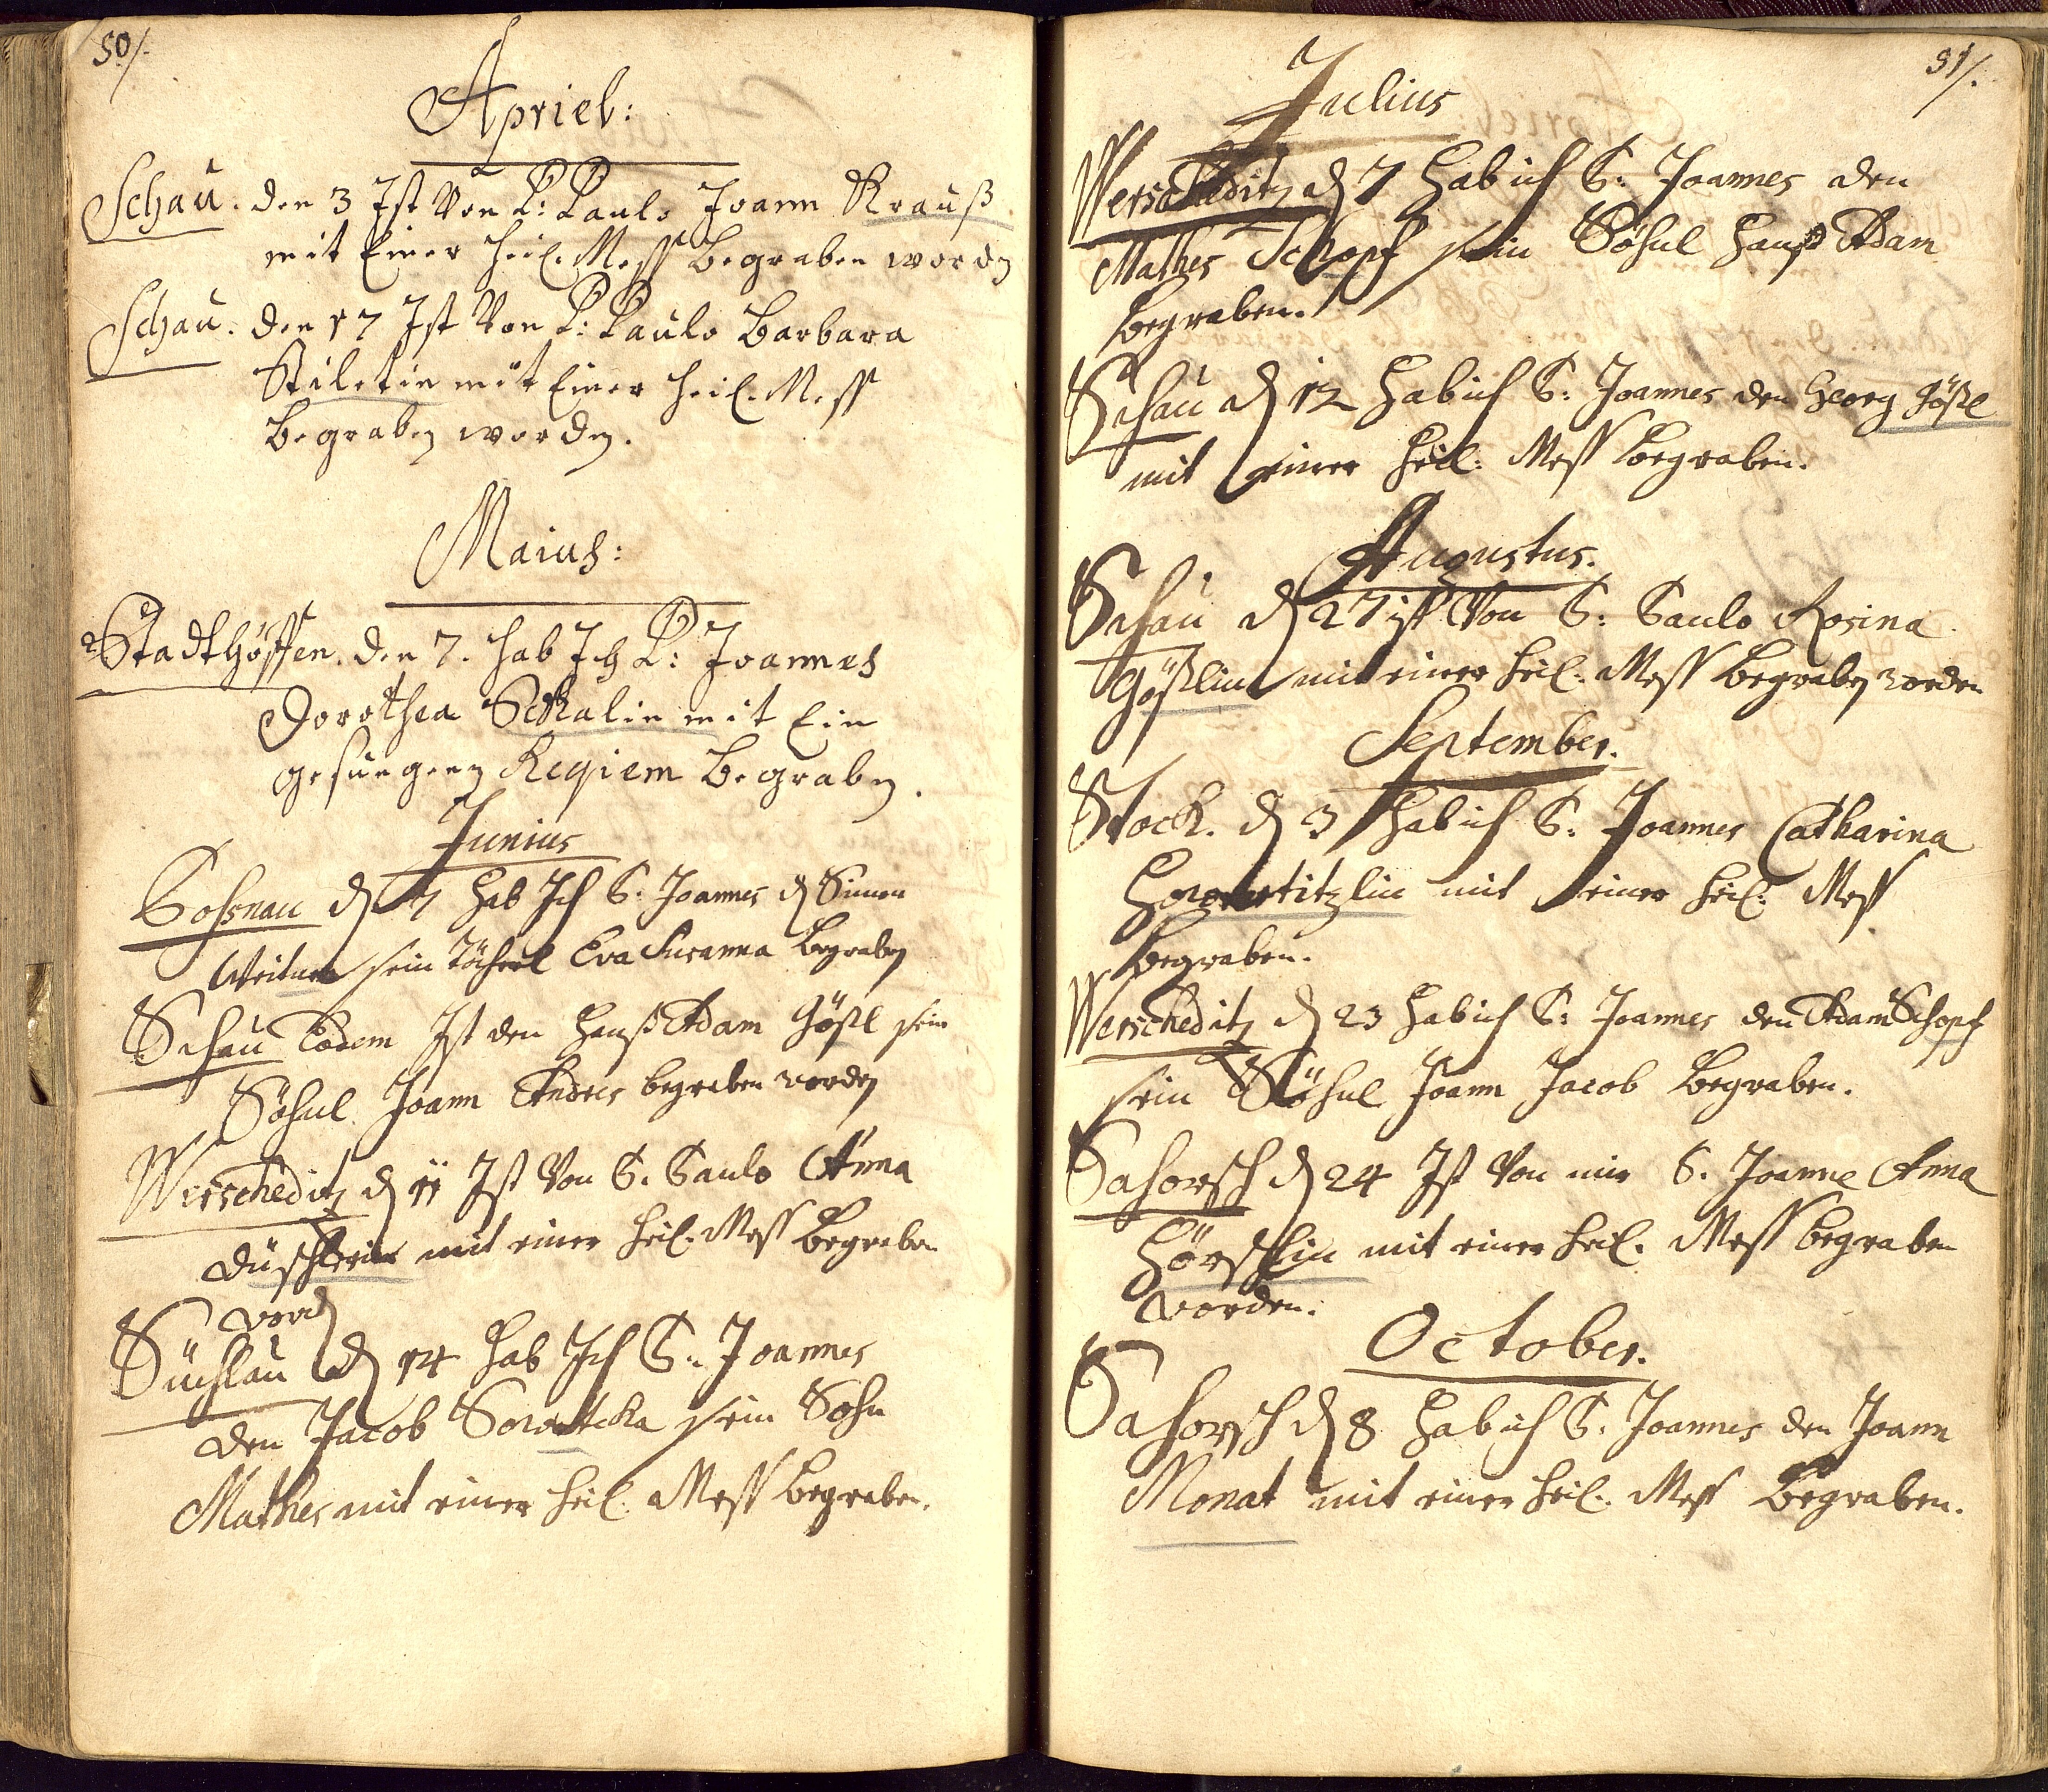 50/.
Apriel:
Schau. den 3 Ist Von P: Paulo Joann Krauß
mit Einer heil. Mess Begraben wordn
Schau. den 17 Ist Von P: Paulo Barbara
Stiletin mit Einer heil. Mess
Begraben worden.
Maius:
Stadthöffen. den 7. hab Ich P: Joannes
Dorothea Sckalin mit Ein
gesungenen Reqiem Begraben.
Junius
Sossnau d 7 hab Ich P. Joannes d Simon
sein Töchterl Eva Susanna Begraben
Schau Eodem Ist den Hanß Adam Gößl sein
Söhnl Joann Andres begraben worden
Werscheditz d 11 Ist Von P. Paulo Anna
Düschlerin mit einer heil. Mess Begraben
word
d 14 hab Ich P. Joannes
den Jacob sein Sohn
Mathes mit einer heil. Mess Begraben.
51/.
Julius
Werscheditz d 7 hab ich P: Joannes den
Mathes Schopf sein Söhnl Hanß Adam
Begraben.
Schau d 12 hab ich P: Joannes den Georg Gößl
mit einer heil: Mess Begraben.
Augustus.
Schau d 27 ist Von P: Paulo Rosina
Gößlin mit einer heil. Mess Begraben worden
September.
Stock. d 3 hab ich P: Joannes Catharina
mit einer heil. Mess
Begraben.
Werscheditz d 23 hab ich P: Joannes den Adam Schopf
sein Söhnl Joann Jacob Begraben.
Sahorsch d 24 Ist Von mir P. Joanne Anna
Hörschlin mit einer heil. Mess begraben
worden.
October.
Sahorsch d 8 hab ich P. Joannes den Joann
Monat mit einer heil. Mess Begraben.